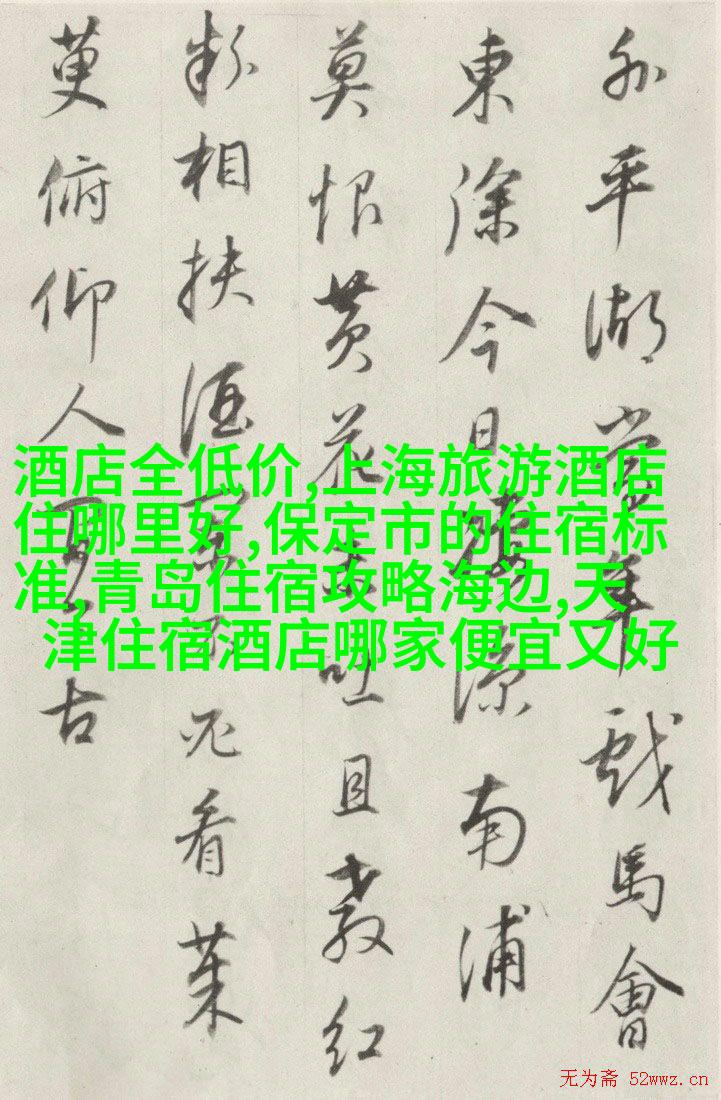 外平湖當年戲馬會
東徐今日淒涼南浦
莫恨黄花未吐且教紅
粉相扶酒闌不必看茱
萸俯仰人間今古
酒店全低价,上海旅游酒店
住哪里好,保定市的住宿标
准,青岛住宿攻略海边,天
津住宿酒店哪家便宜又好
无为斋 52wwz.cn